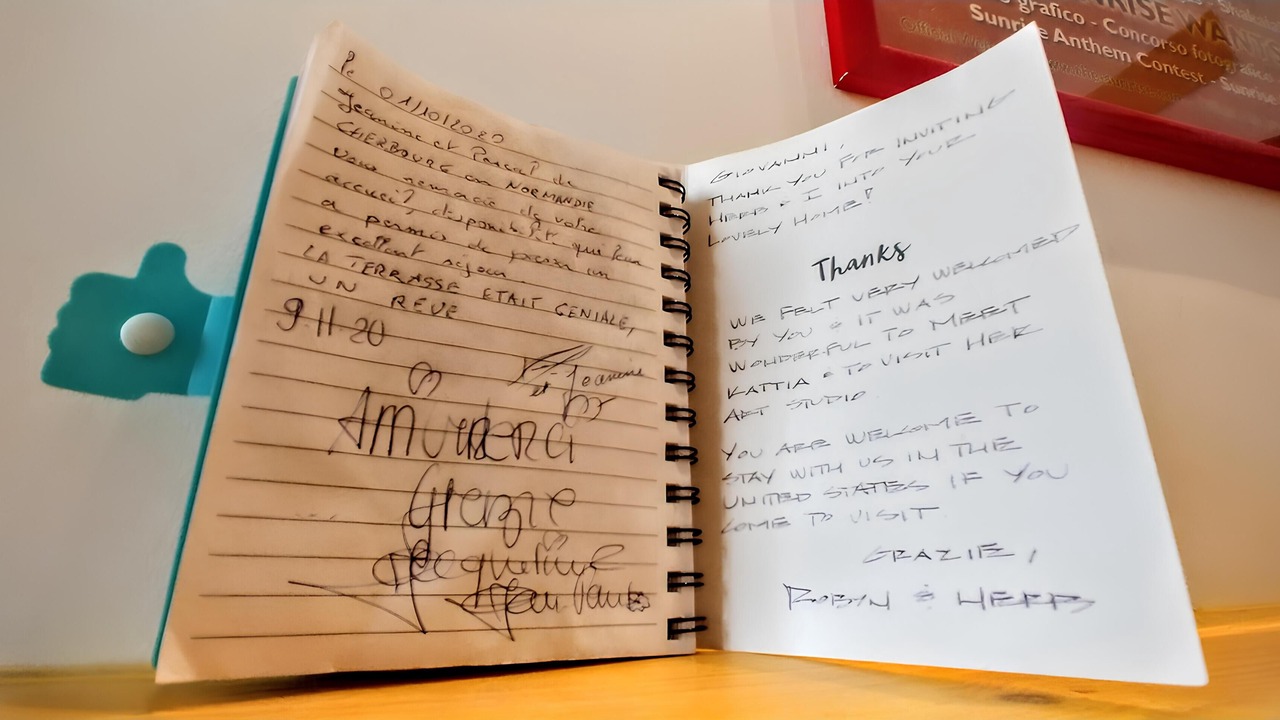 Le 01/10/2020
Jeannine et Pascal de
CHERBOURG en NORMANDIE
Vous remercie de votre
accueil, disponibilité qui leur
a permis de passer un
excellent séjour
LA TERRASSE ETAIT GENIALE,
UN REVE
Jeannine
et
9 11 20
Grazie
Jacqueline
Jean
GIOVANNI,
THANK YOU FOR INVITING
HERB & I INTO YOUR
LOVELY HOME!
Thanks
WE FELT VERY WELCOMED
BY YOU & IT WAS
WONDERFUL TO MEET
KATTIA & TO VISIT HER
ART STUDIO
YOU ARE WELCOME TO
STAY WITH US IN THE
UNITED STATES IF YOU
COME TO VISIT
GRAZIE,
ROBYN & HERB
NRISE WANTS
grafico - Concorso fotografico
Sunrise Anthem Contest - Sunrise
Official
www.the-sunrise.com